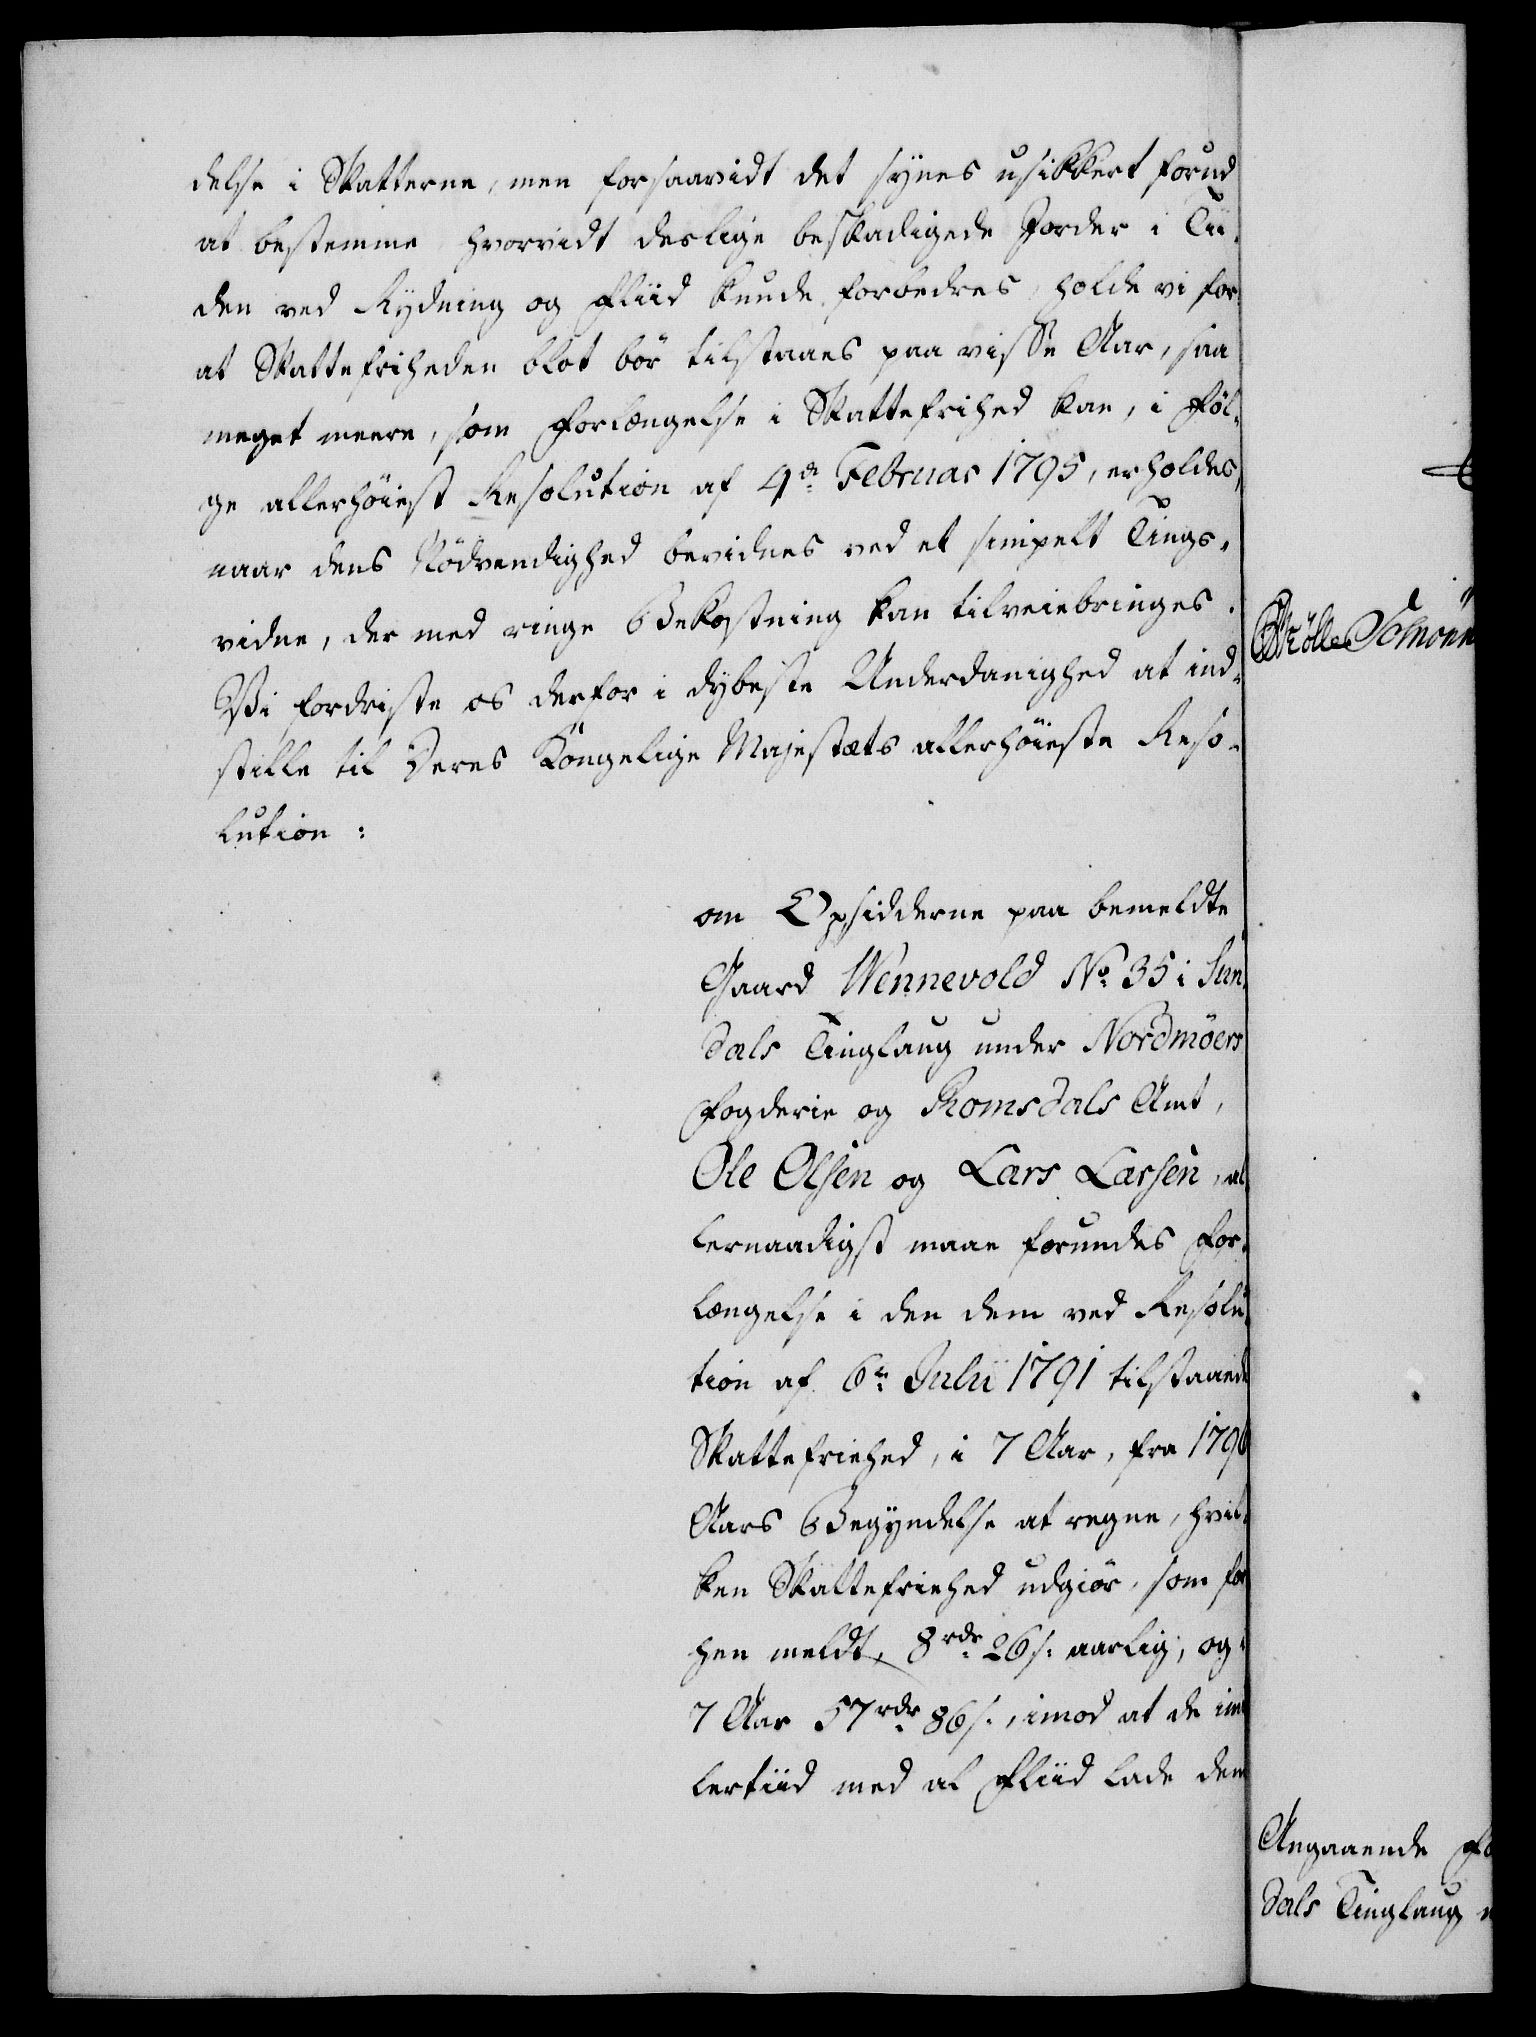 delse i Skatterne, men forsaavidt det synes usikkert forud
at bestemme hvorvidt deslige beskadigede Jorder i Tii-
den ved Rydning og Fliid kunde forbedres, holde vi for
at Skattefriheden blot bör tilstaaes paa visse Aar, saa
meget meere, som Forlængelse i Skattefrihed kan, i Föl-
ge allerhöiest Resolution af 4de Februar 1795, erholdes,
naar dens Nödvendighed bevidnes ved et simpelt Tings-
vidne, der med ringe Bekostning kan tilveiebringes.
Vi fordriste os derfor i dybeste Underdanighed at ind-
stille til Deres Kongelige Majestæts allerhöieste Reso-
lution:
om Opsidderne paa bemeldte
Gaard Wennevold No 35 i Sun-
dals Tinglaug under Nordmöers
Fogderie og Romsdals Amt,
Ole Olsen og Lars Larsen, al-
lernaadigst maae forundes For-
længelse i den dem ved Resolu-
tion af 6te Julii 1791 tilstaaede
Skattefriehed, i 7 Aar, fra 1796
Aars Begyndelse at regne, hvil-
ken Skattefriehed udgiör, som for
hen meldt, 8rdr 26 s. aarlig, og
7 Aar 57rdr 86 s., imod at de im
lertiid med al Fliid lade dem
Angaaende Fo
dals Tinglaug